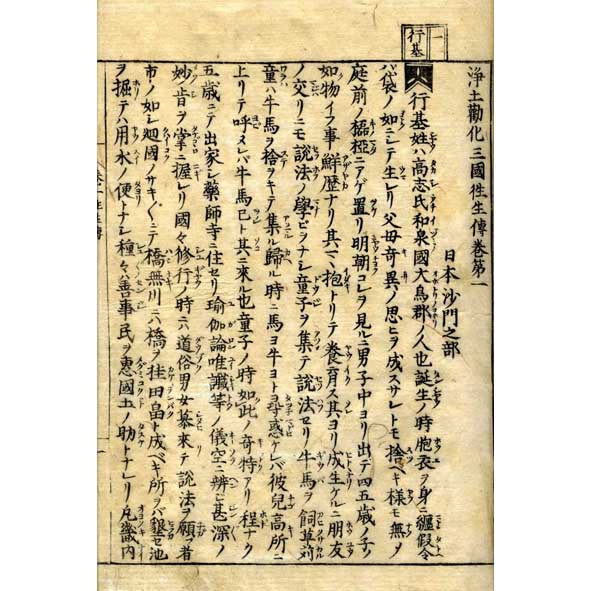 一
行基
浄土勸化三國徃生傳巻第一
日本沙門之部
行基姓ハ高志氏和泉國大鳥郡ノ人也誕生ノ時胞衣ヲ身ニ纒假令
バ袋ノ如ニシテ生レリ父母奇異ノ思ヒヲ成スサレトモ捨ベキ様モ無メ
庭前ノ榲椏ニアゲ置リ明朝コレヲ見ルニ男子中ヨリ出テ四五歳ノ子ノ
如物イフ事鮮歴ナリ其マヽ抱トリテ養育ス其ヨリ成生ゲルニ朋友
ノ交リニモ說法ノ學ビヲナシ童子ヲ集テ說法セリ牛馬ヲ飼草苅
童ハ牛馬ヲ捨ヲキテ集ル歸ル時ニ馬ヨ牛ヨト尋惑ケレバ彼兒高所ニ
上リテ呼メレバ牛馬已ト其コ來ル也童子ノ時如此ノ奇特アリ程ナク
五歳ニテ出家シ藥師寺ニ住セリ瑜伽論唯識等ノ儀空ニ辨ヒ甚深ノ
妙旨ヲ掌ニ握レリ國々修行ノ時ニハ道俗男女慕來テ說法ヲ願フ者
市ノ如シ廻國ノサキ〲ニテ橋無川ニハ橋ヲ掛田畠ト成ベキ所ヲバ墾セ池
ヲ掘テハ用水ノ便トナシ種々ノ善事民ヲ惠國土ノ助トナレリ凡畿内